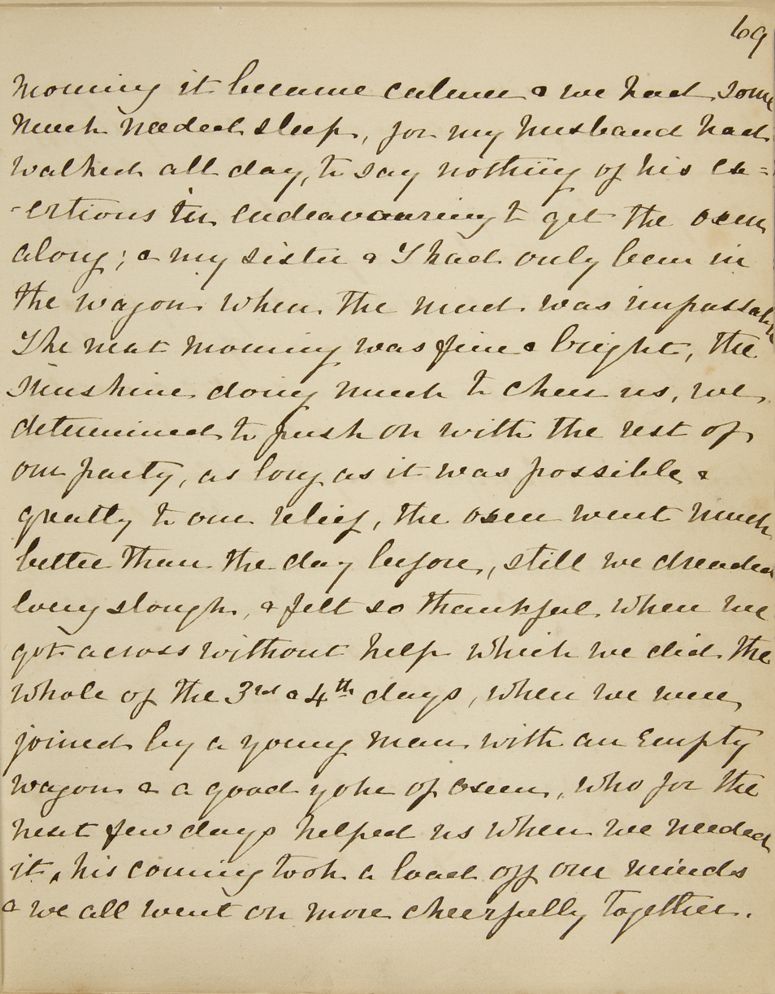 69
morning it became calmer & we had some
much needed sleep, for my husband had
walked all day, to say nothing of his ex=
-ertions in endeavouring to get the oxen
along; & my sister & I had only been in
the wagon when the mud was impassable
The next morning was fine & bright, the
sunshine doing much to cheer us, we
determined to push on with the rest of
our party, as long as it was possible &
greatly to our relief, the oxen went much
better than the day before, still we dreaded
every slough, & felt so thankful when we
got across without help which we did the
whole of the 3rd & 4th days, when we were
joined by a young man with an empty
wagon & a good yoke of oxen, who for the
next few days helped us when we needed
it, his coming took a load off our minds
& we all went on more cheerfully together.